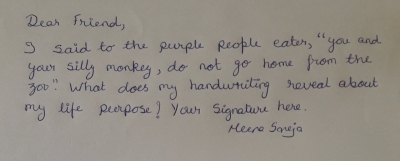 Dear Friend,
I said to the purple people eater, "you and
your silly monkey, do not go home from the
zoo". What does my handwriting reveal about
my life purpose? Your Signature here.
Meena